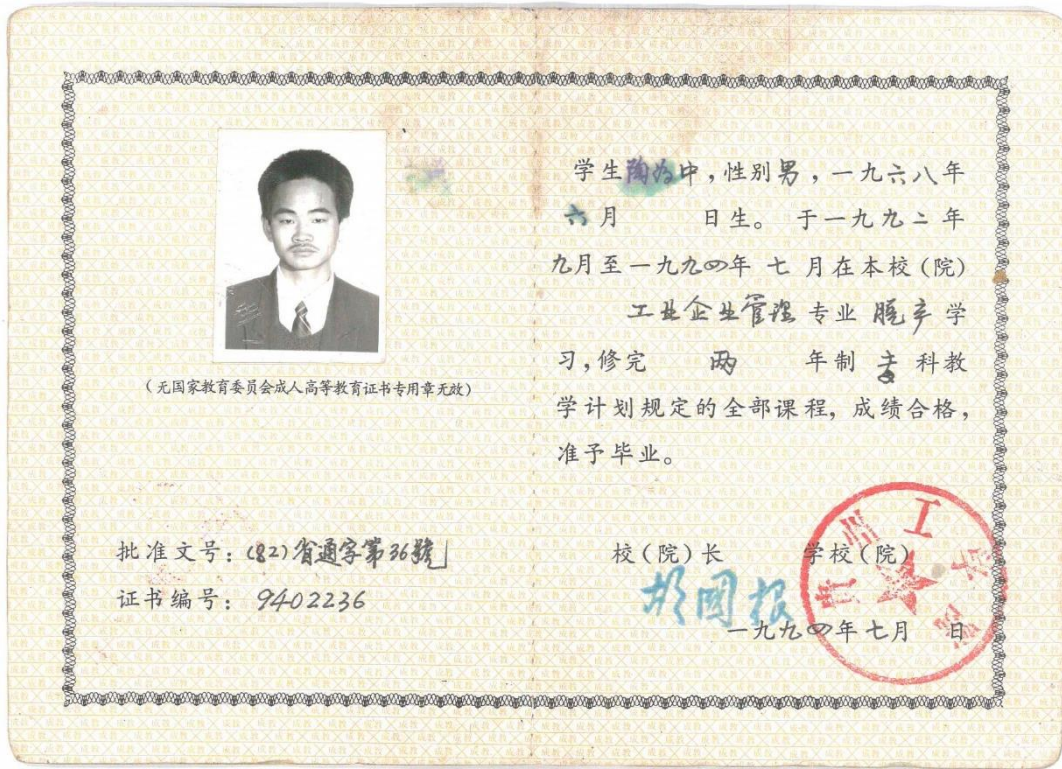 (无国家教育委员会成人高等教育证书专用章无效)
批准文号：(82)省通字第36號
证书编号：9402236
学生陶为中，性别男，一九六八年
六月 日生。于一九九二年
九月至一九九四年 七 月在本校(院)
工业企业管理 专业 脱产 学
习，修完 两 年制 专 科教
学计划规定的全部课程，成绩合格，
准予毕业。
校(院)长 学校(院)
胡國根
一九九四年七月 日